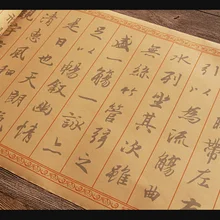 帶左右
為流觴曲
水列坐其次雖
無絲竹管弦之
盛一觴一詠
以暢叙幽情
是日也天朗
清惠風